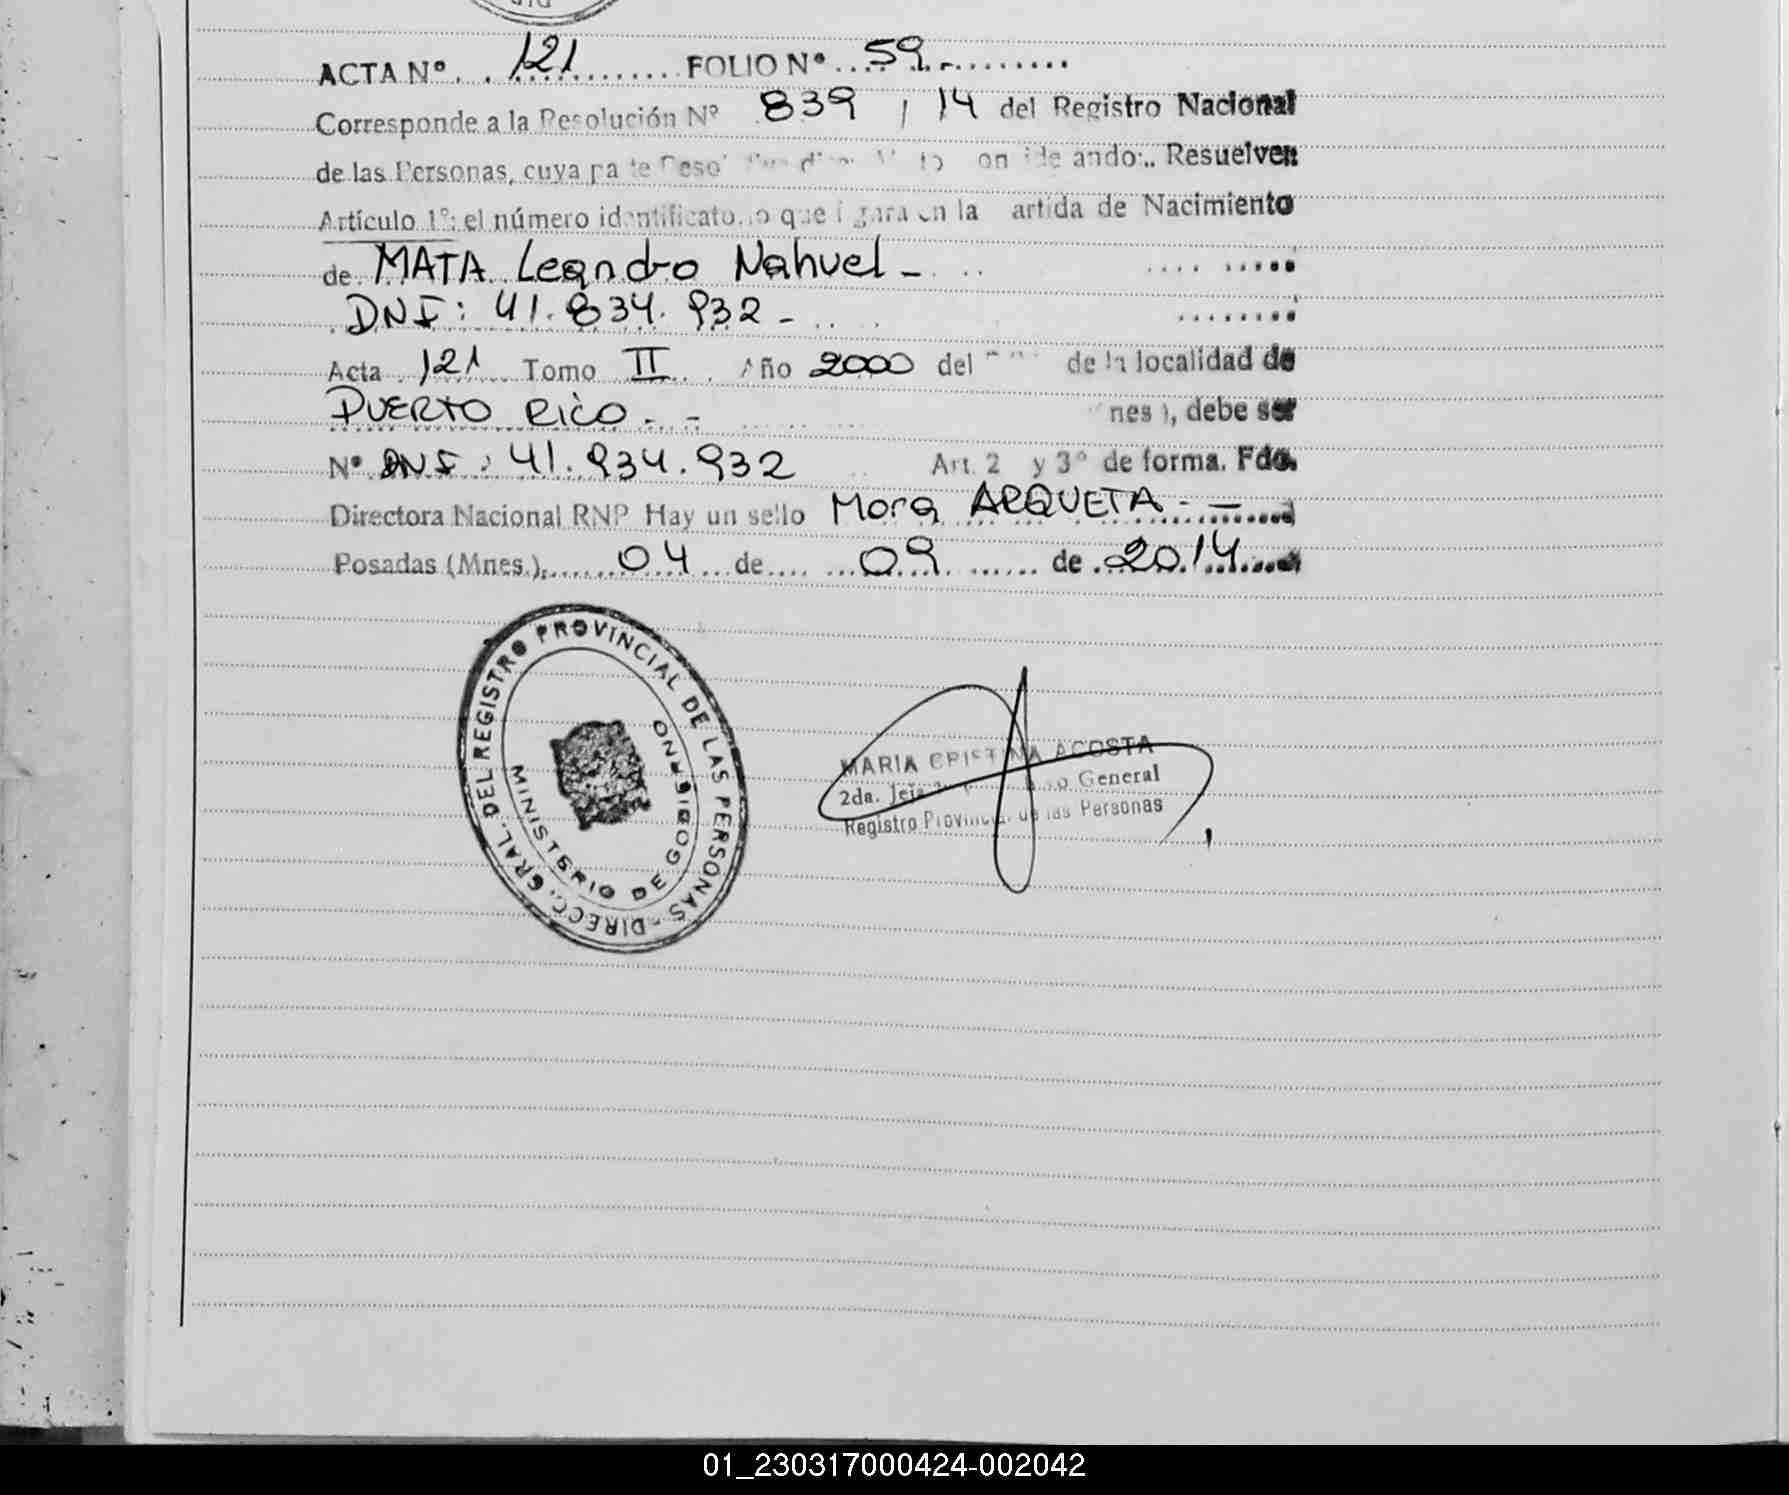 ACTA Nº 121 FOLIO Nº 59.-
Corresponde a la Resolución Nº 839 / 14 del Registro Nacional
de las Personas, cuya Resuelven
Artículo 1º: el número que en la artida de Nacimiento
de MATA Leandro Nahuel -
DNI: 41.834.932 -
Acta 121 Tomo II Año 2000 del de la localidad de
PUERTO RICO - -
nes), debe ser
Nº DNI: 41.934.932 Art. 2 y 3º de forma. Fdo.
Directora Nacional RNP Hay un sello Mora ARQUETA - -
Posadas (Mnes.), 04 de 09 de 2014
DIRECC. GRAL. DEL REGISTRO PROVINCIAL DE LAS PERSONAS -
MINISTERIO DE GOBIERNO
MARIA CRISTINA ACOSTA
2da. General
Registro Provincial de las Personas
01_230317000424-002042